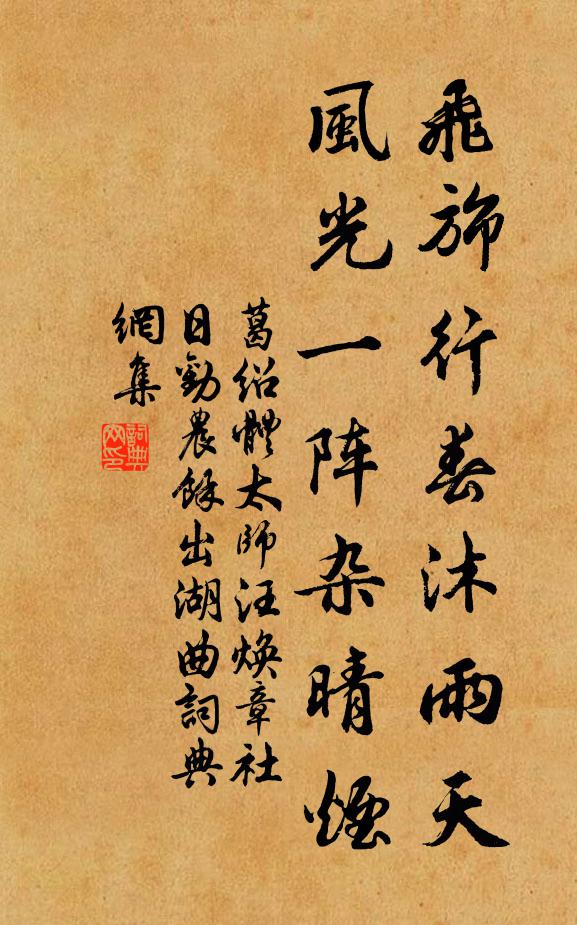 飛斾行春沐雨天
風光一阵杂晴煙
葛绍體太師汪焕章社
日勸農餘出湖曲詞典
網集
詞典
网印